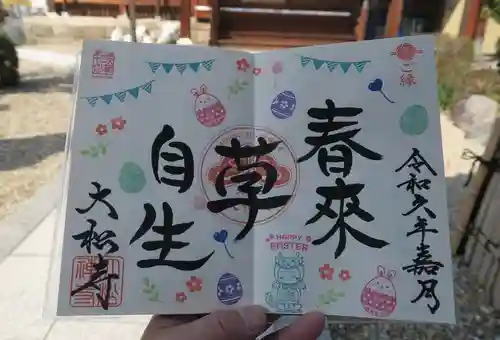 ご縁
春来
草
自生
令和六年嘉月
大松寺
HAPPY
EASTER